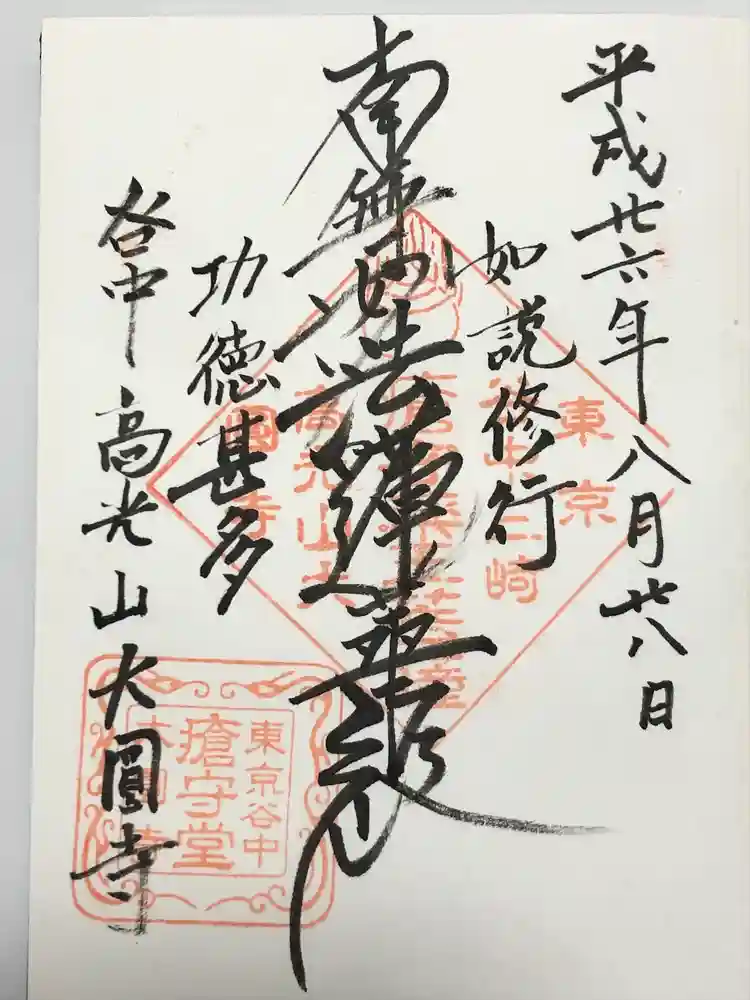 平成廿六年八月廿八日
如説修行
南無妙法蓮華経
功徳甚多
谷中 高光山大圓寺
東京
谷中三崎
高光山大
圓寺
東京谷中
瘡守堂
大圓寺